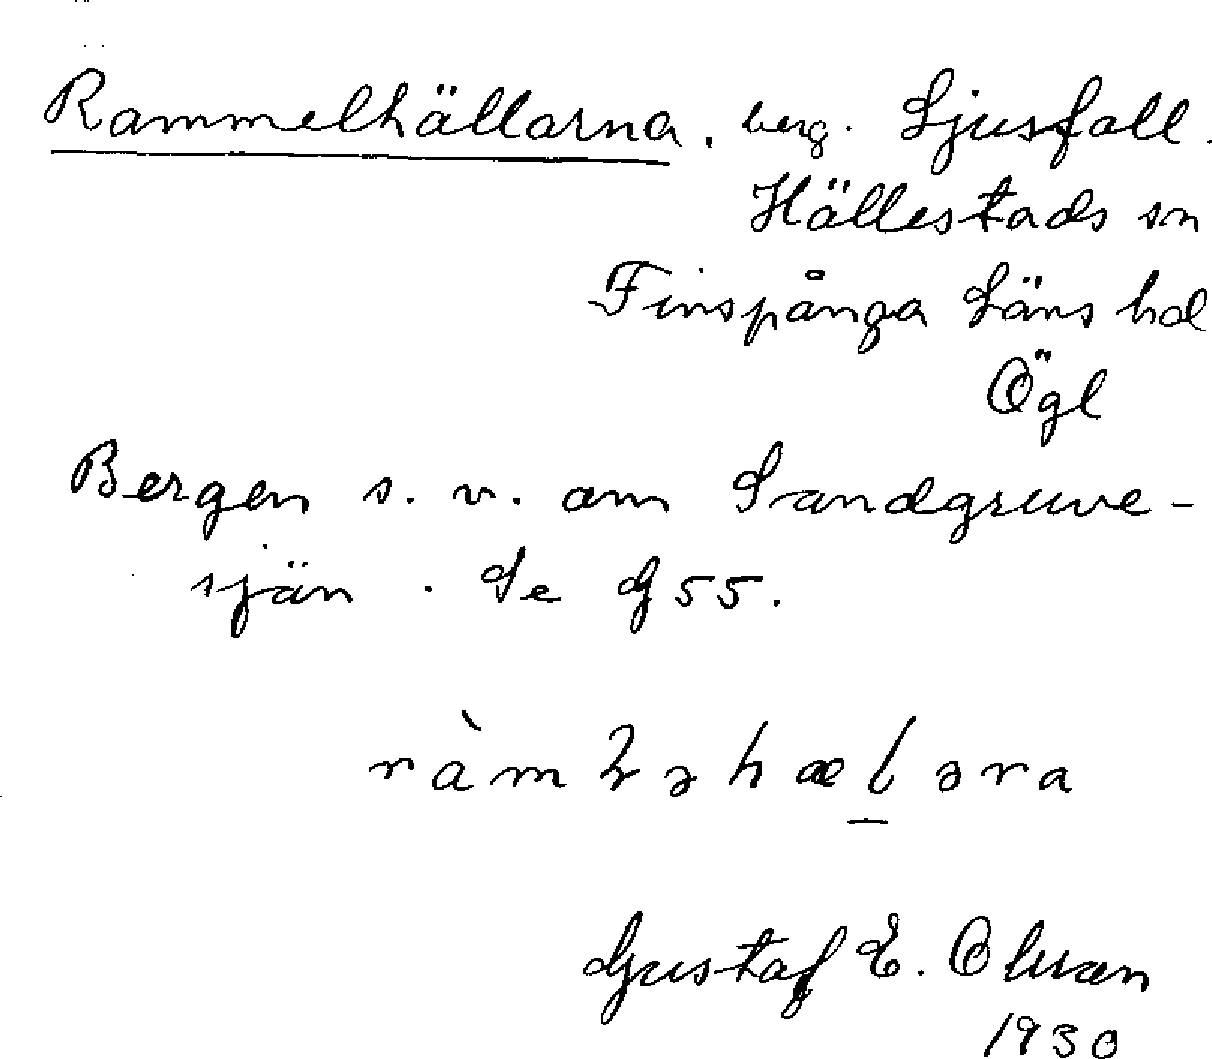 Rammelhällarna, berg. Ljusfall.
Hällestads sn
Finspånga Läns hd
Ögl
Bergen s.v. om Sandgruve-
sjön. Se G 55.
Gustaf E. Olsson
1930